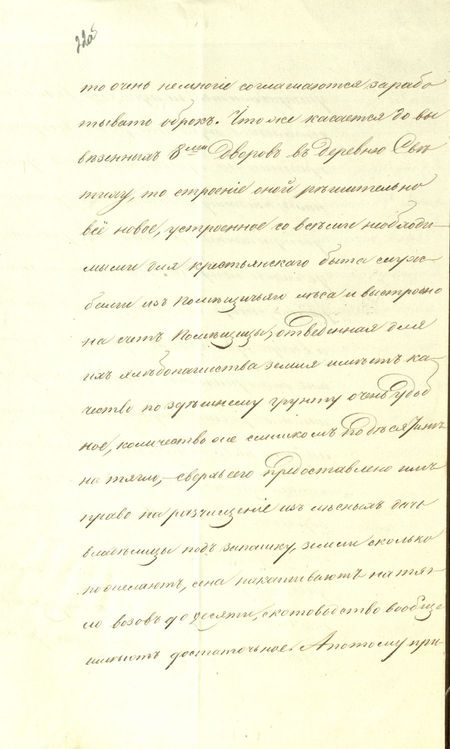 22об
то очень немногіе соглашаются зарабо
тывать оброкъ. Что же касается до вы
везенныхъ 8ми дворовъ въ деревню
то строеніе оной рѣшительно
всё новое, устроенное со всѣми необходи
мыми для крестьянскаго быта служ
бами изъ помѣщичьяго лѣса и выстроено
на счетъ помѣщицы, отведенная для
ихъ хлѣбопашества земля имѣетъ ка
чество по здѣшнему грунту очень удоб
ное, количество оне слишкомъ
на тягло, сверхъ сего предоставлено имъ
право на разчищеніе изъ лѣсныхъ дачь
владѣлицы подъ запашку, земли сколько
пожелаютъ, сена накашиваютъ на тяг
ло возовъ до десяти, скотоводство вообще
имѣютъ достаточное. А потому при